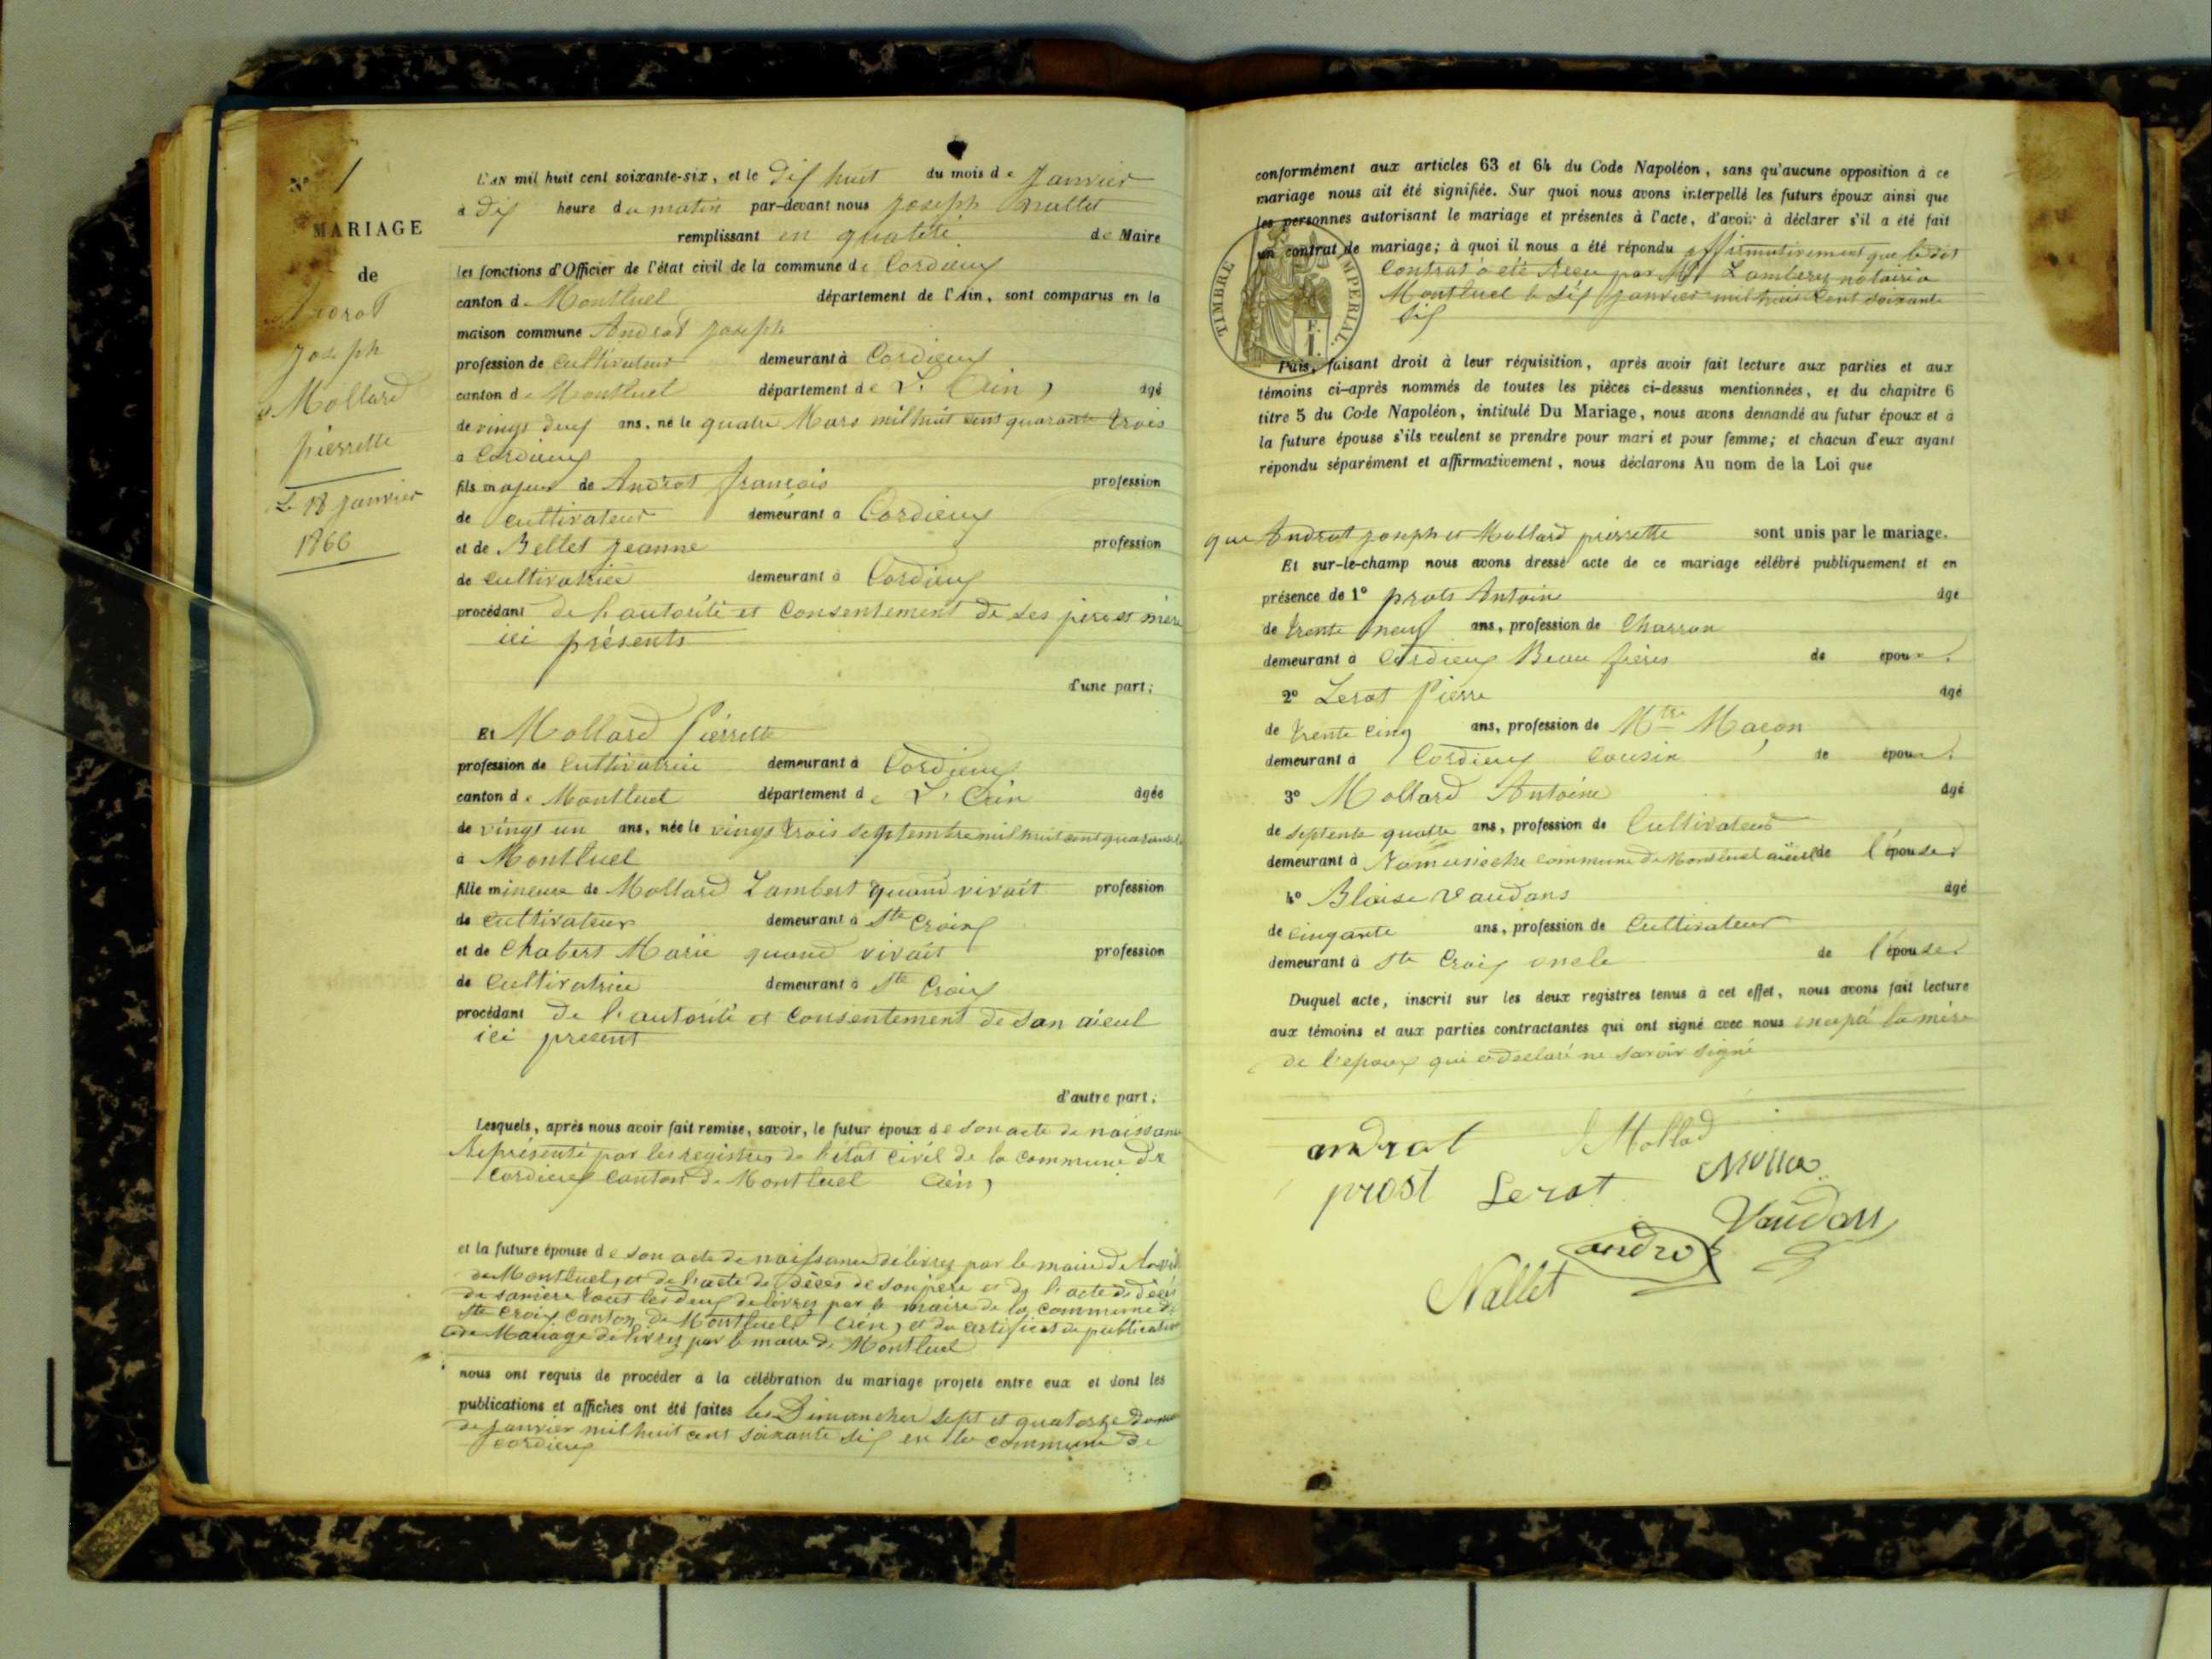 N° 1
MARIAGE
de
Androt
Joseph
et Mollard
pierrette
Le 18 Janvier
1866
L'AN mil huit cent soixante-six, et le dix huit du mois de Janvier
à dix heure du matin par-devant nous Joseph Nallet
remplissant en qualité de Maire
les fonctions d'Officier de l'état civil de la commune de Cordieux
canton de Montluel département de l'Ain, sont comparus en la
maison commune Androt Joseph
profession de Cultivateur demeurant à Cordieux
canton de Montluel département de L'Ain, âgé
de vingt deux ans, né le quatre Mars mil huit cent quarante trois
à Cordieux
fils majeur de Androt françois profession
de Cultivateur demeurant à Cordieux
et de Bellet Jeanne profession
de Cultivatrice demeurant à Cordieux
procédant de l'autorité et Consentement de ses pere et mère
ici présents
d'une part;
Et Mollard Pierrette
profession de Cultivatrice demeurant à Cordieux
canton de Montluel département de L'Ain âgée
de vingt un ans, née le vingt trois septembre mil huit cent quarante
à Montluel
fille mineure de Mollard Lambert quand vivait profession
de Cultivateur demeurant à Ste Croix
et de Chabert Marie quand vivait profession
de Cultivatrice demeurant à Ste Croix
procédant de l'autorité et Consentement de son aieul
ici present
d'autre part.
Lesquels, après nous avoir fait remise, savoir, le futur époux de son acte de naissance
Représenté par les registres de l'état civil de la commune de
Cordieux Canton de Montluel Ain,
et la future épouse de son acte de naissance délivrez par le maire de la ville
de Montluel, et de l'acte de décès de son père et de l'acte de décès
de sa mère tous les deux delivrez par le maire de la commune de
Ste Croix Canton de Montluel Ain, et du certificat de publication
de Mariage délivrez par le maire de Montluel
nous ont requis de procéder à la célébration du mariage projeté entre eux et dont les
publications et affiches ont été faites les Dimanches sept et quatorze du mois
de Janvier mil huit cent soixante six en la commune de
Cordieux
conformément aux articles 63 et 64 du Code Napoléon, sans qu'aucune opposition à ce
mariage nous ait été signifiée. Sur quoi nous avons interpellé les futurs époux ainsi que
les personnes autorisant le mariage et présentes à l'acte, d'avoir à déclarer s'il a été fait
un contrat de mariage; à quoi il nous a été répondu affirmativement que le dit
Contrat a été Reçu par Mtre Lambery notaire a
Montluel le dix Janvier mil huit Cent soixante
six
TIMBRE IMPERIAL.
F.
I.
Puis, faisant droit à leur réquisition, après avoir fait lecture aux parties et aux
témoins ci-après nommés de toutes les pièces ci-dessus mentionnées, et du chapitre 6
titre 5 du Code Napoléon, intitulé Du Mariage, nous avons demandé au futur époux et à
la future épouse s'ils veulent se prendre pour mari et pour femme; et chacun d'eux ayant
répondu séparément et affirmativement, nous déclarons Au nom de la Loi que
que Androt Joseph et Mollard pierrette sont unis par le mariage.
Et sur-le-champ nous avons dressé acte de ce mariage célébré publiquement et en
présence de 1° prots Antoine âgé
de trente neuf ans, profession de Charron
demeurant à Cordieux Beau frères de époux.
2° Lerat Pierre âgé
de trente cinq ans, profession de Mtre Maçon
demeurant à Cordieux Cousin de époux.
3° Mollard Antoine âgé
de septente quatre ans, profession de Cultivateur
demeurant à Romanieche commune de Montluel aieul de l'épouse
4° Blaise Vaudans âgé
de cinqante ans, profession de Cultivateur
demeurant à Ste Croix oncle de l'épouse
Duquel acte, inscrit sur les deux registres tenus à cet effet, nous avons fait lecture
aux témoins et aux parties contractantes qui ont signé avec nous excepté la mère
de l'epoux qui a declaré ne savoir signé
androt Mollad
prost Lerat
Vaudan
andro
Nallet